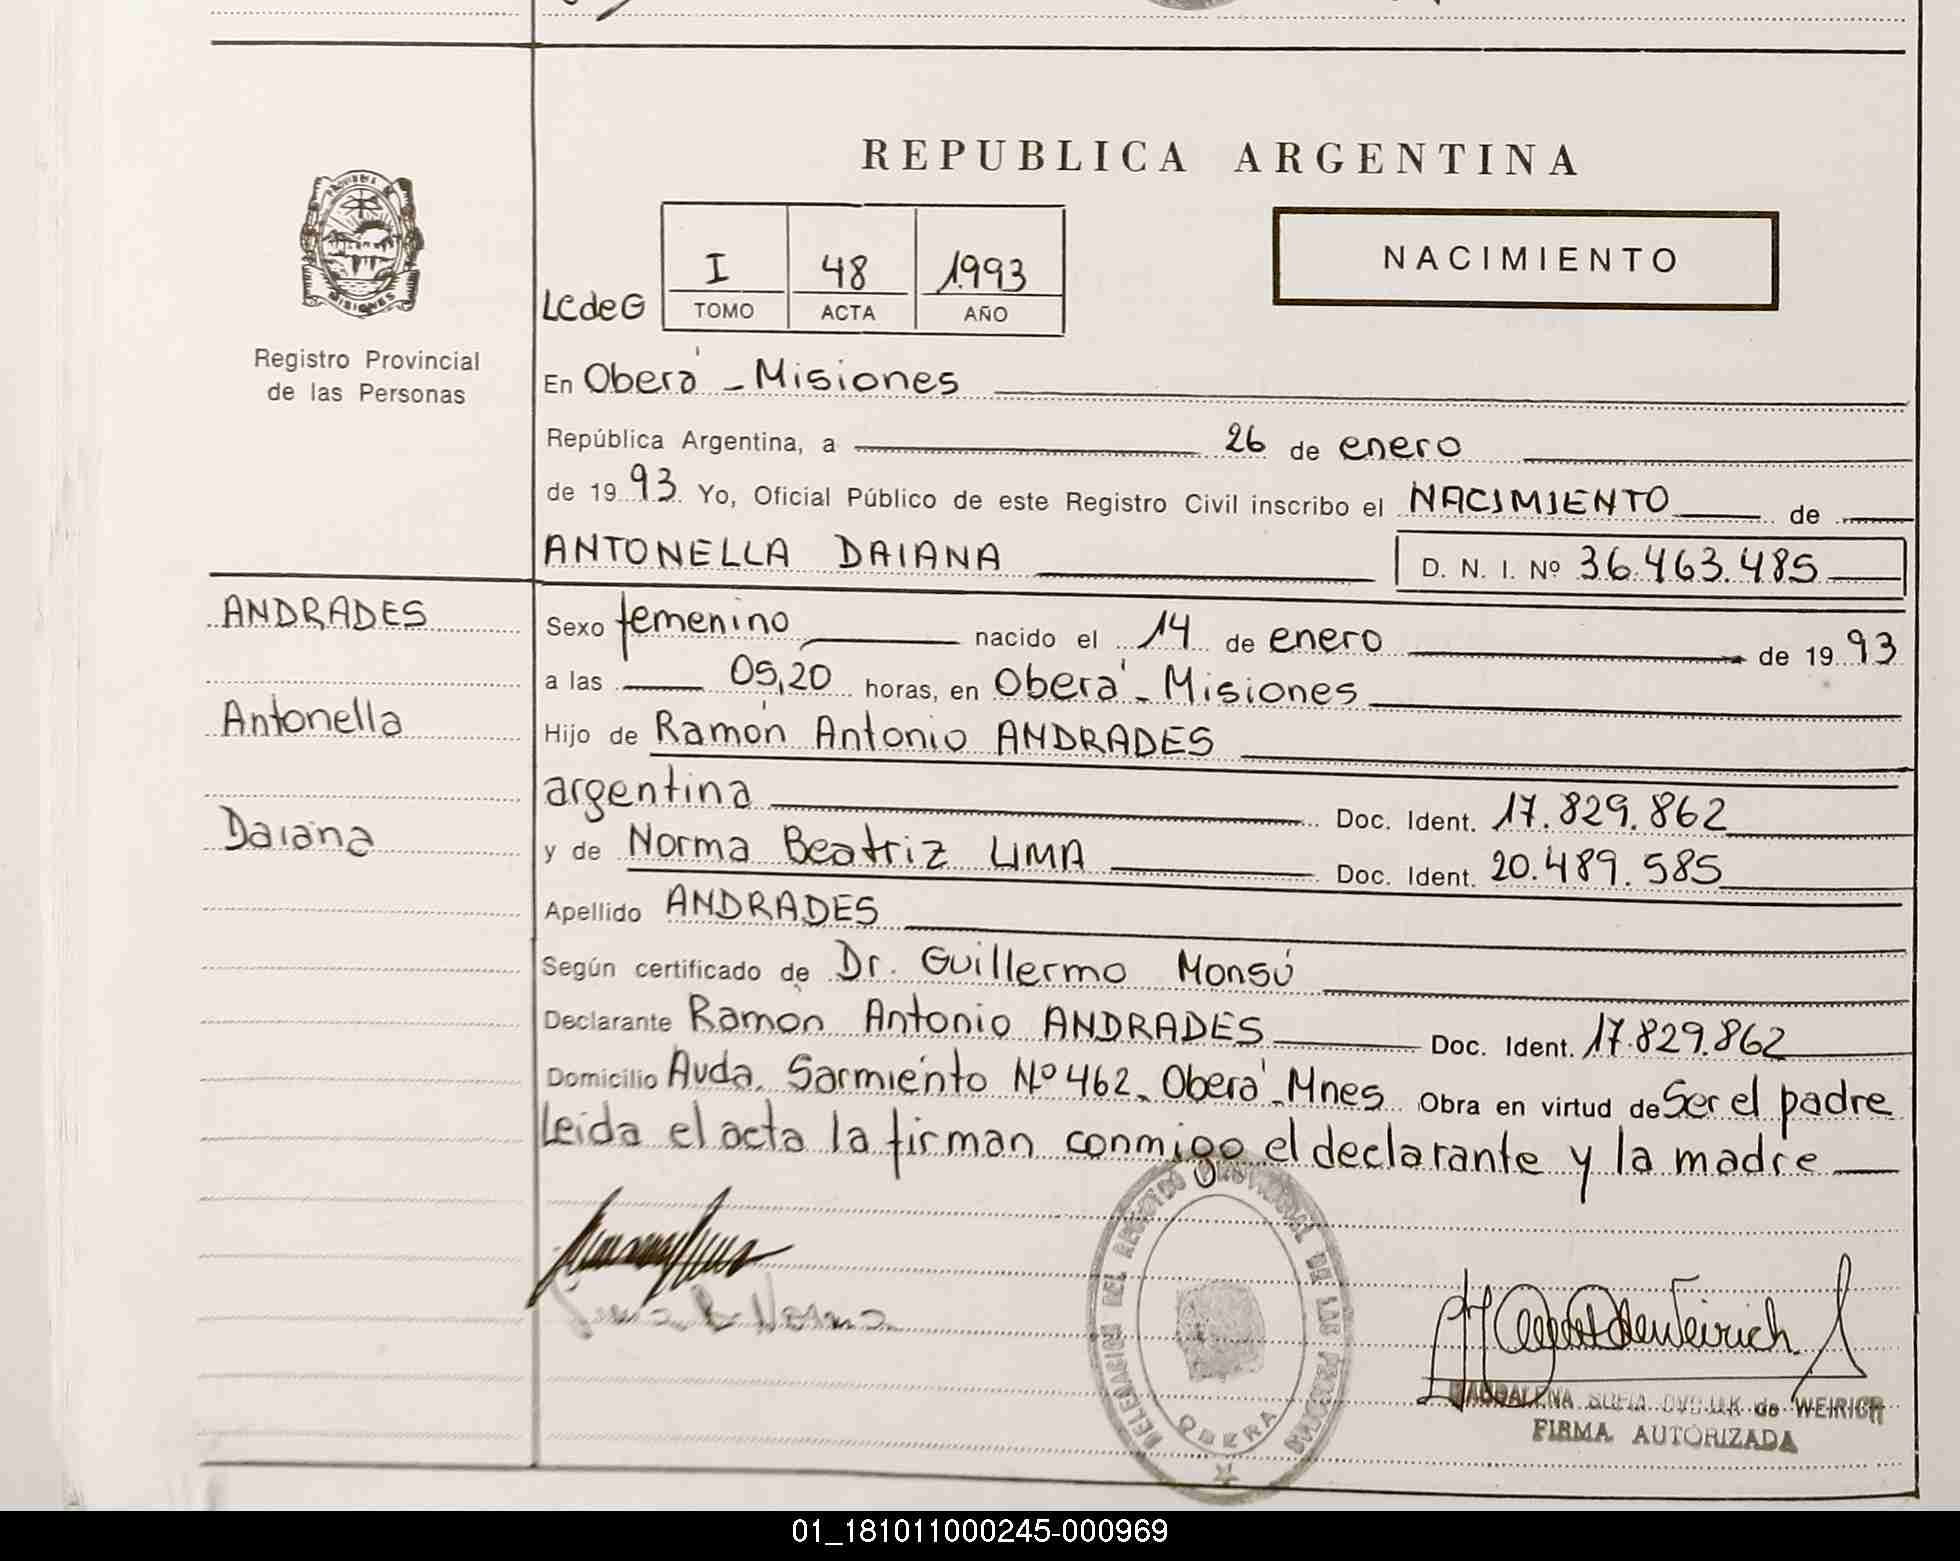 REPUBLICA ARGENTINA
PROVINCIA DE
MISIONES
Registro Provincial
de las Personas
NACIMIENTO
LCdeG
I 48 1993
TOMO ACTA AÑO
En Oberá - Misiones
República Argentina, a 26 de enero
de 1993 Yo, Oficial Público de este Registro Civil inscribo el NACIMIENTO de
ANTONELLA DAIANA D. N. I. Nº 36.463.485
ANDRADES
Antonella
Daiana
Sexo femenino nacido el 14 de enero de 1993
a las 05,20 horas, en Oberá - Misiones
Hijo de Ramón Antonio ANDRADES
argentina Doc. Ident. 17.829.862
y de Norma Beatriz LIMA Doc. Ident. 20.489.585
Apellido ANDRADES
Según certificado de Dr. Guillermo Monsú
Declarante Ramón Antonio ANDRADES Doc. Ident. 17.829.862
Domicilio Avda. Sarmiento Nº 462. Oberá - Mnes Obra en virtud de Ser el padre
Leida el acta la firman conmigo el declarante y la madre
DELEGACION DEL REGISTRO PROVINCIAL DE LAS PERSONAS
OBERA
MAGDALENA SOFIA de WEIRICH
FIRMA AUTORIZADA
01_181011000245-000969